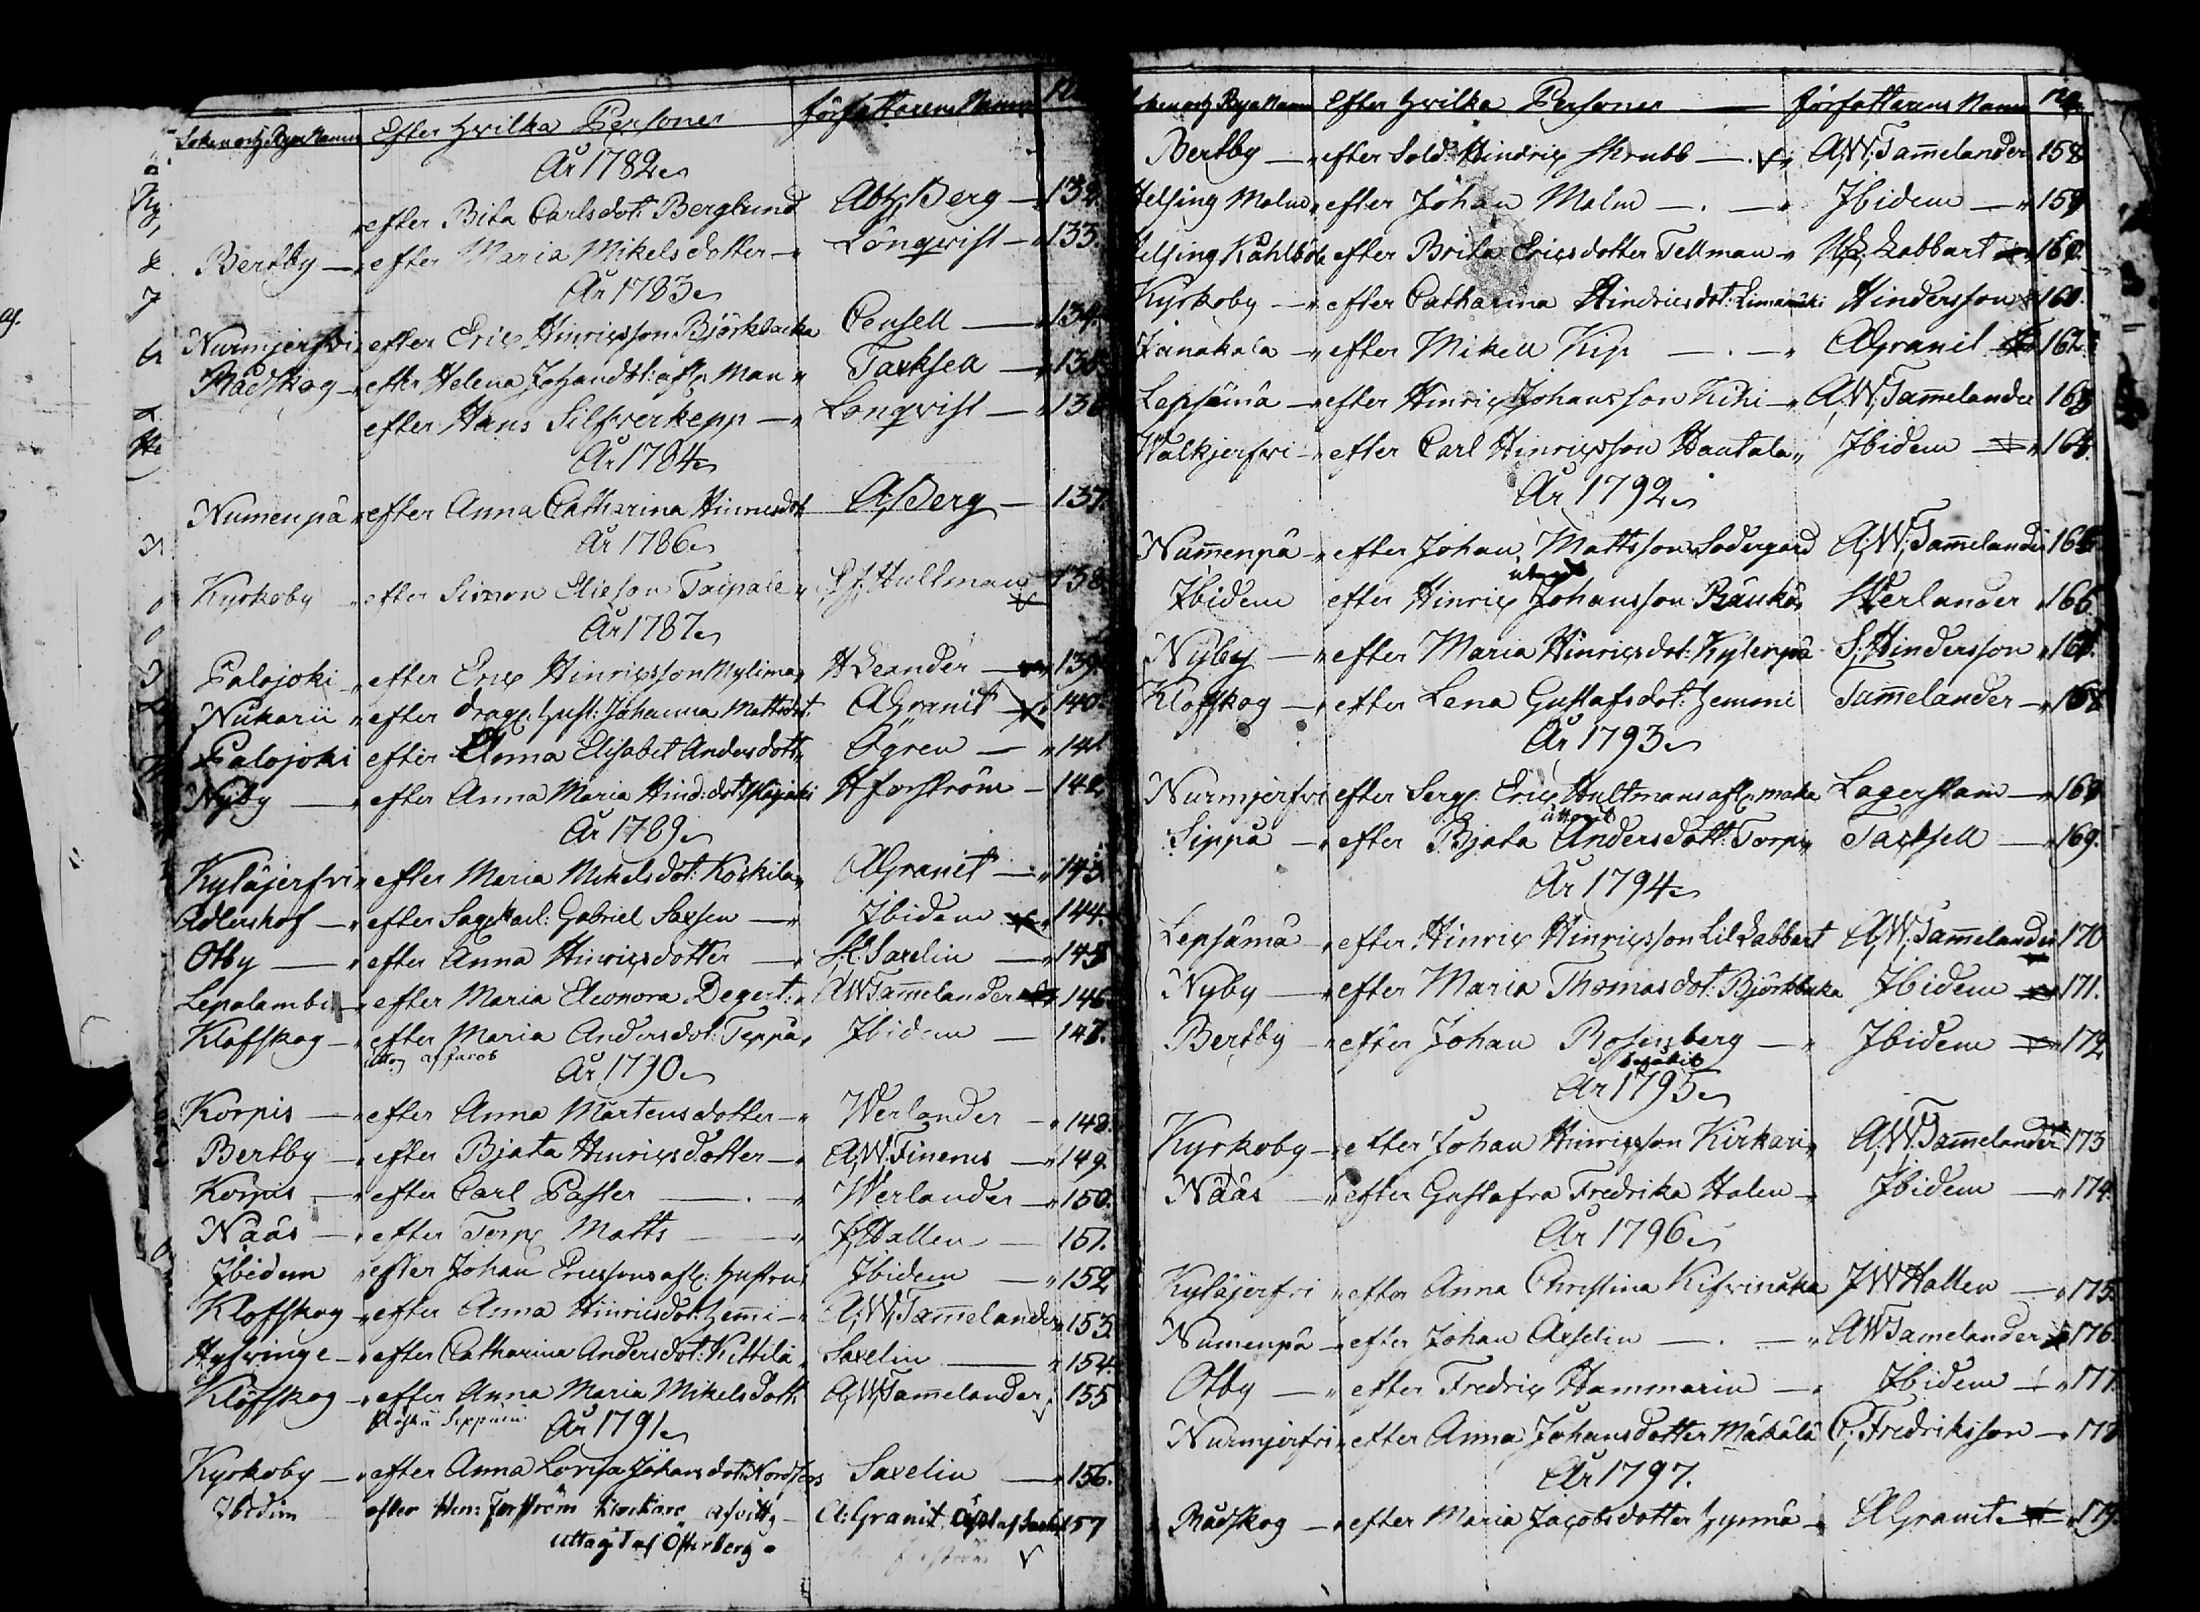 Soken och Byn Namn Efter hvilka Personer författarens Namn No
År 1782
efter Bita Carlsdot: Berglund Abr: Berg 132.
Bertby efter Maria Mikelsdotter Lönqvist 133.
År 1783
Nurmjerfvi efter Eric Hinricsson Björkbacka Pensell 134.
Rådskog efter Helena Johansdot: afl. Man Taxsell 135.
efter Hans Silfverkepp Lonqvist 136
År 1784
Numenpä efter Anna Catharina Hinricsdot A: Berg 137.
År 1786
Kyrkoby efter Simon Elieson Taipale Hultman 138
År 1787
Palojoki efter Eric Hinricsson Mylimä H Leander 139.
Nukarii efter drag. hust: Johanna Mattsdot: A Granit 140.
Palojoki efter Anna Elisabet Andersdott. Ogren 141
Nyby efter Anna Maria Hind: dot: H forström 142.
År 1789
Kyläjerfvi efter Maria Mikelsdot: Koskila A Granit 143.
Adlershof efter Gabriel Saxsen Ibidem 144.
Otby efter Anna Hinricsdotter Saxelin 145
Lepalambi efter Maria Eleonora Degert: AW Tamelander 146.
Klofskog efter Maria Andersdot: Teppå Ibidem 147.
uttog af Jacob
År 1790
Korpis efter Anna Mårtensdotter Werlander 148.
Bertby efter Bjata Hinricsdotter A, W, Finerus 149.
Korpis efter Carl Passer Werlander 150.
Nääs efter Torp. Matts Hallen 151.
Ibidem efter Johan Ericssons afl: hustru Ibidem 152
Klofskog efter Anna Hinricsdot: Hemi A, W, Tamelander 153.
Hyfvinge efter Catharina Andersdot: Kittilä Saxelin 154.
Klöfskog efter Anna Maria Mikelsdott. A, W, Tamelander 155
Seppälä
År 1791
Kyrkoby efter Anna Lovisa Johansdot: Nordfors Saxelin 156.
Ibidim efter Hen: Forström klockare A: Granit 157
uttagit af Österberg
Soken och Byn Namn Efter hvilka Personer författarens Namn No
Bertby efter Sold: Hindric Skrubb A, W, Tamelander 158
Helsing Malm efter Johan Malm Ibidem 159
Helsing Kåhlböle efter Brita Ericsdotter Tellman Labbart 160.
Kyrkoby efter Catharina Hindricsdot: Limamäki Hindersson 161.
Janakala efter Mikell Kip A Granit 162
Lepsämä efter Hinric Johansson Kihi A, W, Tamelander 163
Walkjerfvi efter Carl Hinricsson Hautala Ibidem 164.
År 1792
Numenpä efter Johan Mattsson Sodergard A, W, Tamelander 165
Ibidem efter Hinric Johansson Räukö Werlander 166.
Nyby efter Maria Hinricsdot: Kylenpä S, Hindersson 167.
Klofskog efter Lena Gustafsdot: Hemmi Tamelander 168
År 1793
Nurmjerfvi efter Serg. Eric Hultmans afl. maka Lagerstam 169
uttagit
Sippu efter Bjata Andersdott: Torp Taxsell 169.
År 1794
Lepsämä efter Hinric Hinricsson Lil Labbart A, W, Tamelander 170
Nyby efter Maria Thomasdot: Björkbaka Ibidem 171.
Bertby efter Johan Rosenberg Ibidem 172
År 1795
Kyrkoby efter Johan Hinricsson Kirkari A, W, Tamelander 173
Nääs efter Gustafva Fredrika Halen Ibidem 174.
År 1796
Kyläjerfvi efter Anna Christina Kifvinäka JW Hallen 175.
Numenpä efter Johan Axselin AW Tamelander 176.
Otby efter Fredric Hammarin Ibidem 177.
Nurmjerfvi efter Anna Johansdotter Mäkälä C, Fredriksson 178
År 1797.
Rådskog efter Maria Jacobsdotter Hynnä A Granit 179.